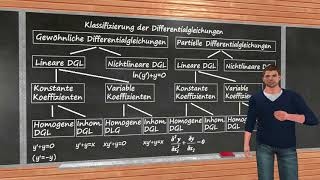 Klassifizierung der Differentialgleichungen
Gewöhnliche Differentialgleichungen
Partielle Differentialgleichungen
Lineare DGL
Nichtlineare DGL
Lineare DGL
Nichtlineare DGL
ln(y')+y=0
Konstante Koeffizienten
Variable Koeffizienten
Konstante Koeffizienten
Variable Koeffizienten
Homogene DGL
Inhom. DGL
Homogene DLG
Inhom. DGL
Homogene DGL
Inhom. DGL
y'+y=0
y'+y=x
xy'+y=0
xy'+y=x
(y'=-y)